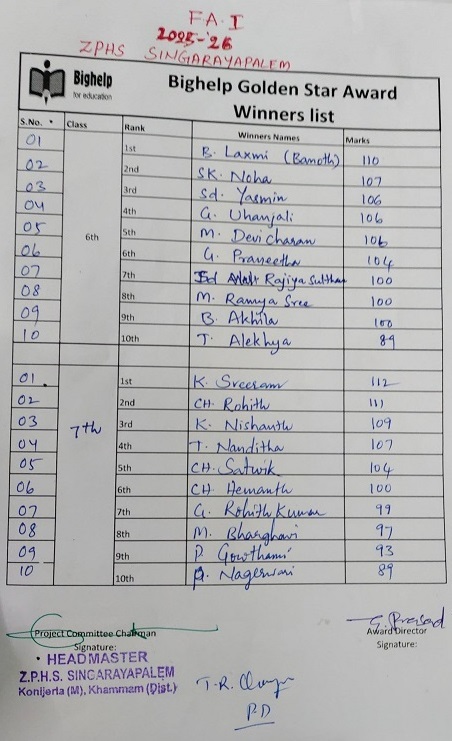 F.A.I
2025-'26
ZPHS SINGARAYAPALEM
Bighelp
for education
Bighelp Golden Star Award
Winners list
S.No. Class Rank Winners Names Marks
01 1st B. Laxmi (Banoth) 110
02 2nd SK. Noha 107
03 3rd Sd. Yasmin 106
04 4th G. Uhanjali 106
05 5th M. Devi charan 106
06 6th 6th G. Praneetha 104
07 7th Rajiya Sulthan 100
08 8th M. Ramya Sree 100
09 9th B. Akhila 100
10 10th T. Alekhya 89
01. 1st K. Sreeram 112
02 2nd CH. Rohith 111
03 7th 3rd K. Nishanth 109
04 4th T. Nanditha 107
05 5th CH. Satwik 104
06 6th CH. Hemanth 100
07 7th G. Rohith Kumar 99
08 8th M. Bharghavi 97
09 9th P. Gowthami 93
10 10th Nageswari 89
Project Committee Chairman
Signature:
G. Prasad
Award Director
Signature:
HEADMASTER
Z.P.H.S. SINGARAYAPALEM
Konijerla (M), Khammam (Dist.)
T.R.
P.D